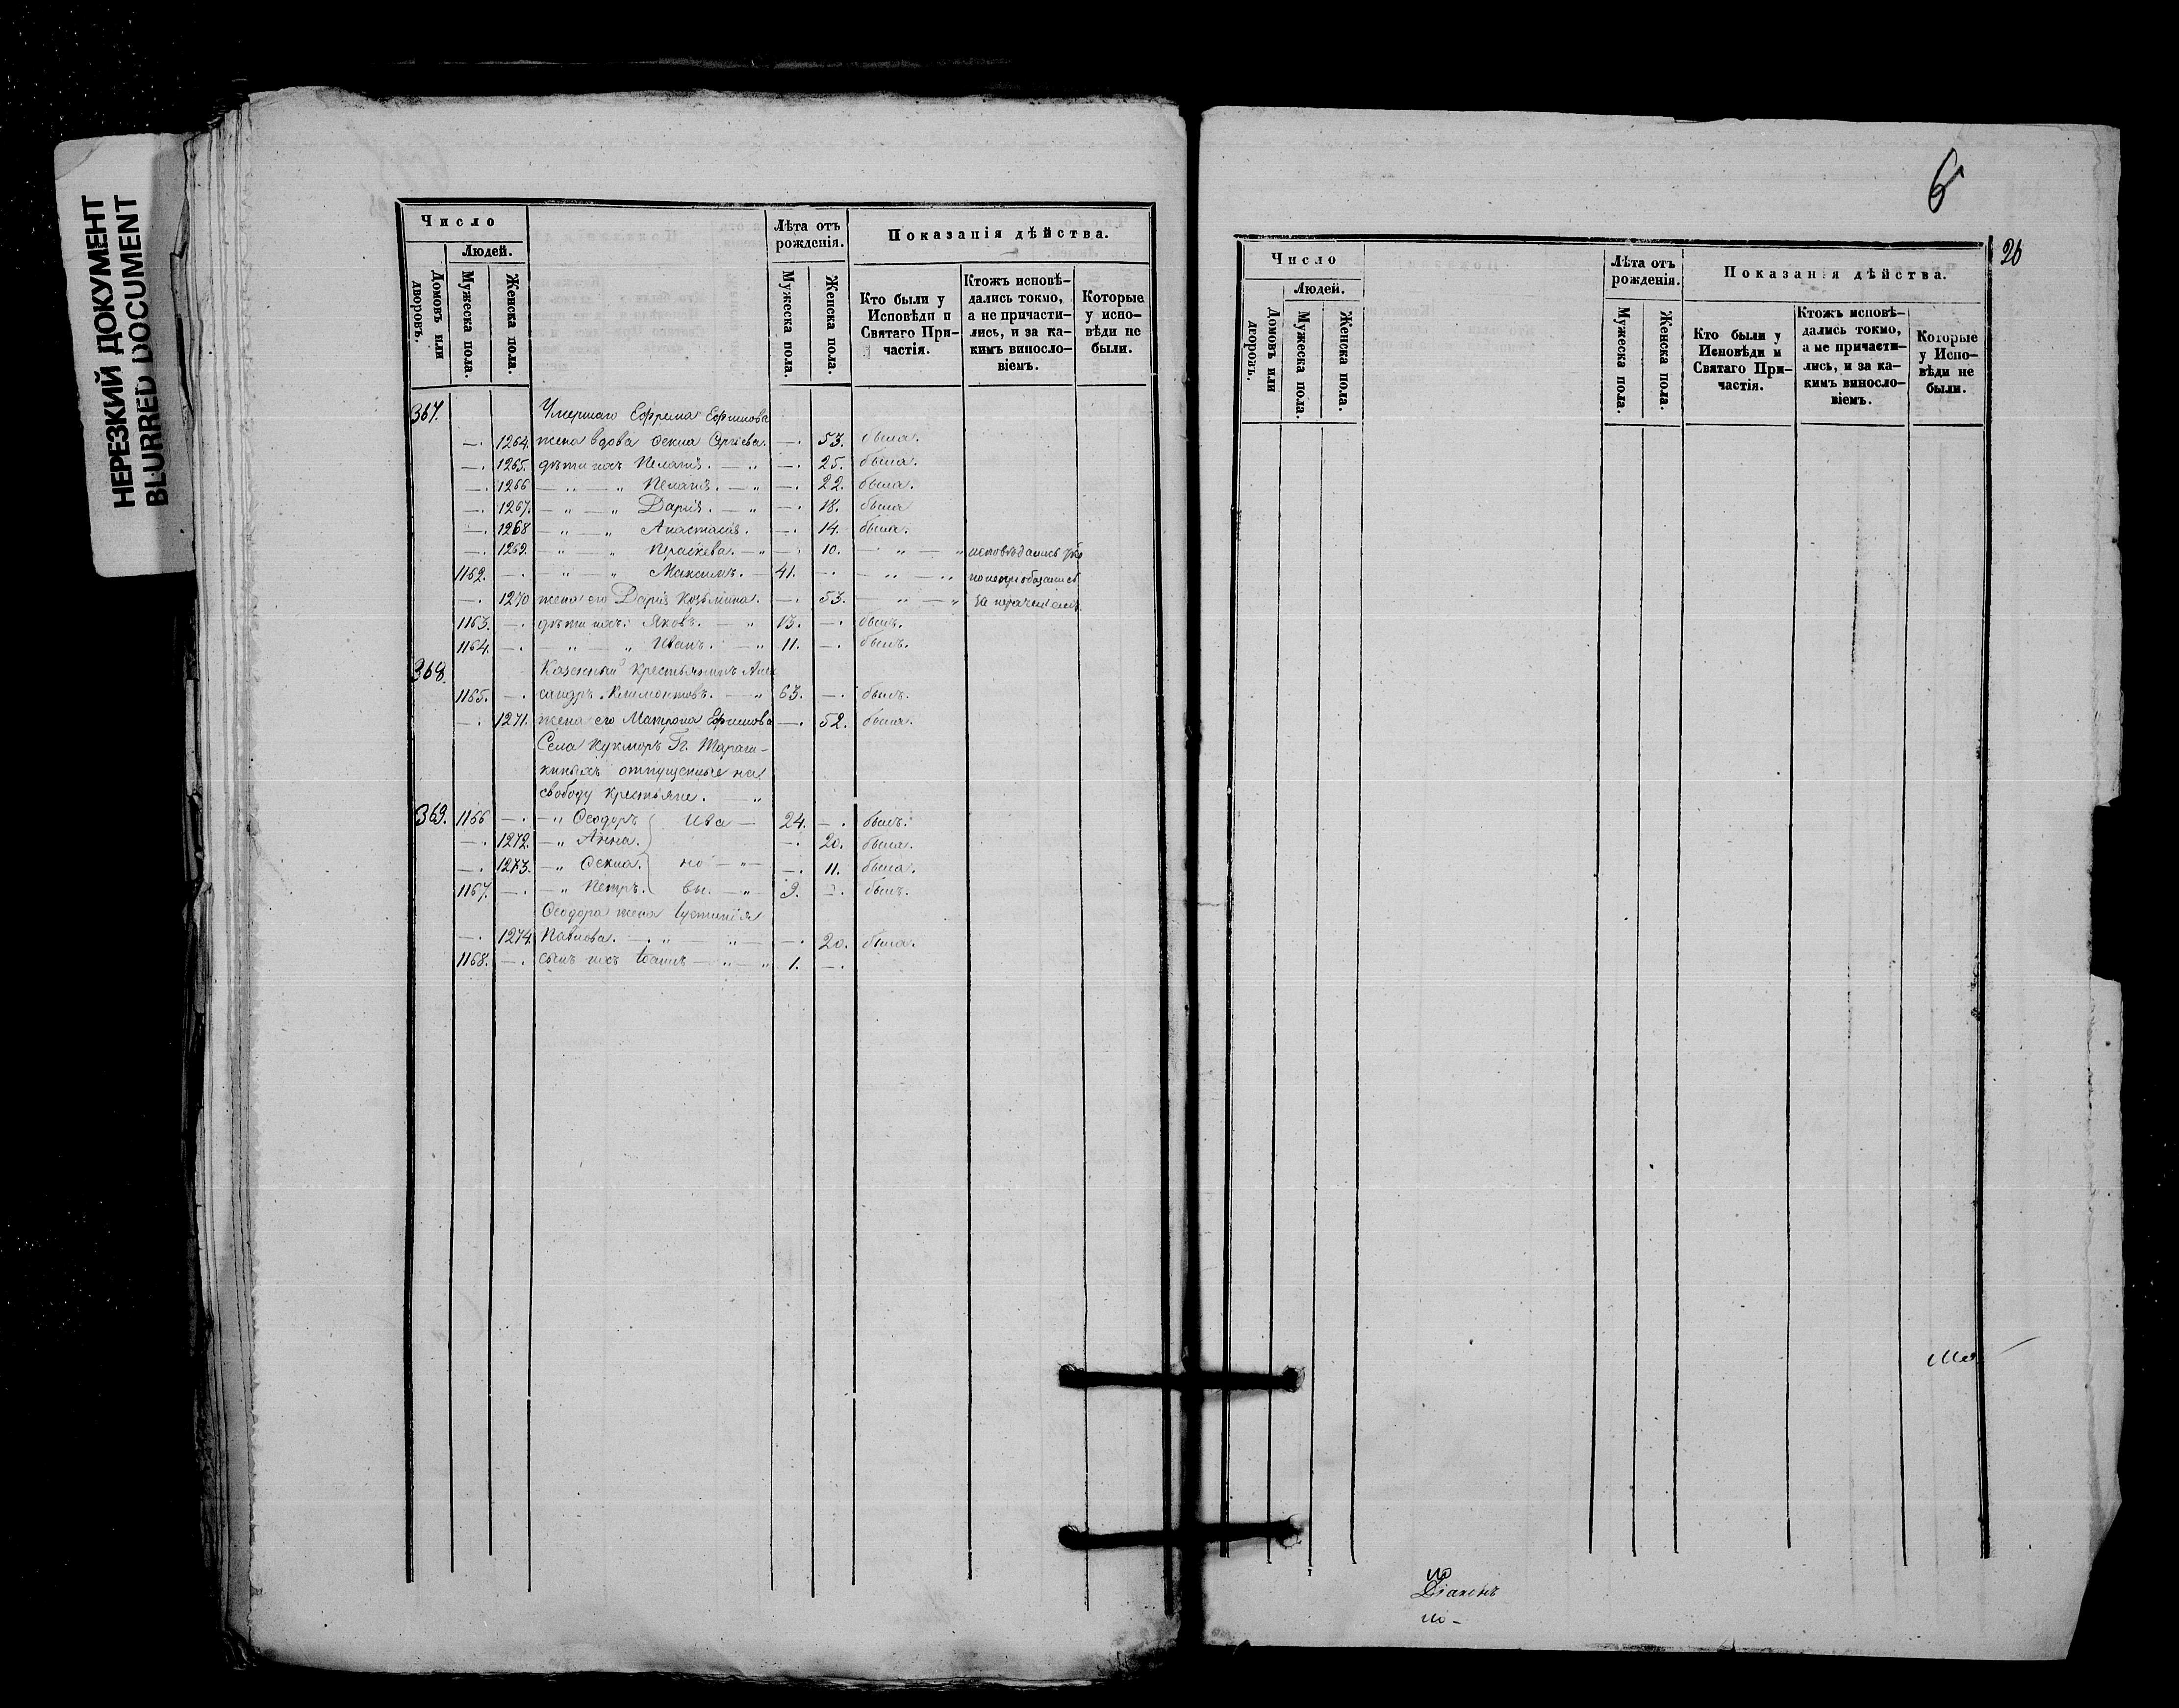 НЕРЕЗКИЙ ДОКУМЕНТ
BLURRED DOCUMENT
Число
Людей.
Домовъ или дворовъ.
Мужеска пола.
Женска пола.
Лѣта отъ рожденія.
Мужеска пола.
Женска пола.
Показанія дѣйства.
Кто были у Исповѣди и Святаго При-частія.
Ктожъ исповѣ-дались токмо, а не причасти-лись, и за ка-кимъ виносло-віемъ.
Которые у испо-вѣди не были.
367. Умершаго Ефрема Ефимова
—. 1264. жена вдова Ѳекла —. 53. была.
—. 1265. дѣти ихъ Пелагія. — „ —. 25. была.
—. 1266 — „ — „ Пелагія. — „ —. 22. была.
—. 1267. — „ — „ Дарія. — „ —. 18. была
—. 1268 — „ — „ Анастасія. —. 14. была.
—. 1269. — „ — „ Параскева. — „ —. 10. — „ — „ исповѣдались
1162. —. — „ — „ Максимъ. — 41. —. — „ — „
—. 1270 жена его Дарія Козьмина. —. 53. — „ — „
1163. —. дѣти ихъ: Яковъ. — „ 13. —. былъ.
1164. —. — „ — „ Иванъ. — „ 11. —. былъ.
368. Казенный крестьянинъ Алек
1165. —. сандръ Климонтовъ. — „ 63. —. былъ.
—. 1271. жена его Матрона Ефимова —. 52. была.
Села Кукморъ Гг.
отпущенные на
свободу крестьяне. — „
369. 1166 —. — „ Ѳеодоръ Ива — 24. —. былъ.
—. 1272. — „ Анна. —. 20. была.
—. 1273. — „ Ѳекла. но — „ — —. 11. была.
1167. —. — „ Петръ. вы. — „ — 9. —. былъ.
Ѳеодора жена Іустинія
—. 1274. Павлова. — „ — „ — —. 20. была.
1168. —. сынъ ихъ Іоаннъ — „ — „ 1. —.
6
26
Число
Людей.
Домовъ или дворовъ.
Мужеска пола.
Женска пола.
Лѣта отъ рожденія.
Мужеска пола.
Женска пола.
Показанія дѣйства.
Кто были у Исповѣди и Святаго При-частія.
Ктожъ исповѣ-дались токмо, а не причасти-лись, и за ка-кимъ виносло-віемъ.
Которые у Испо-вѣди не были.
Діаконъ